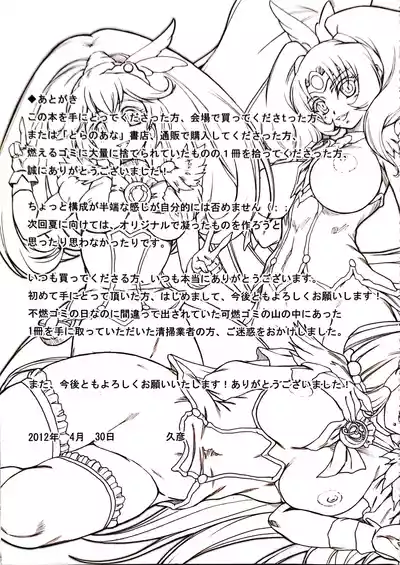 ◆あとがき
この本を手にとってくださった方、会場で買ってくださtった方、
または「とらのあな」書店、通販で購入してくださった方、
燃えるゴミに大量に捨てられていたものの１冊を拾ってくださった方、
誠にありがとうございました！
ちょっと構成が半端な感じが自分的には否めません（；；
次回夏に向けては、オリジナルで凝ったものを作ろうと
思ったり思わなかったりです。
いつも買ってくださる方、いつも本当にありがとうございます。
初めて手にとって頂いた方、はじめまして、今後ともよろしくお願いします！
不燃ゴミの日なのに間違って出されていた可燃ゴミの山の中にあった
1冊を手に取っていただいた清掃業者の方、ご迷惑をおかけしました。
また、今後ともよろしくお願いいたします！ありがとうございました！
2012年　4月　30日　　　　久彦